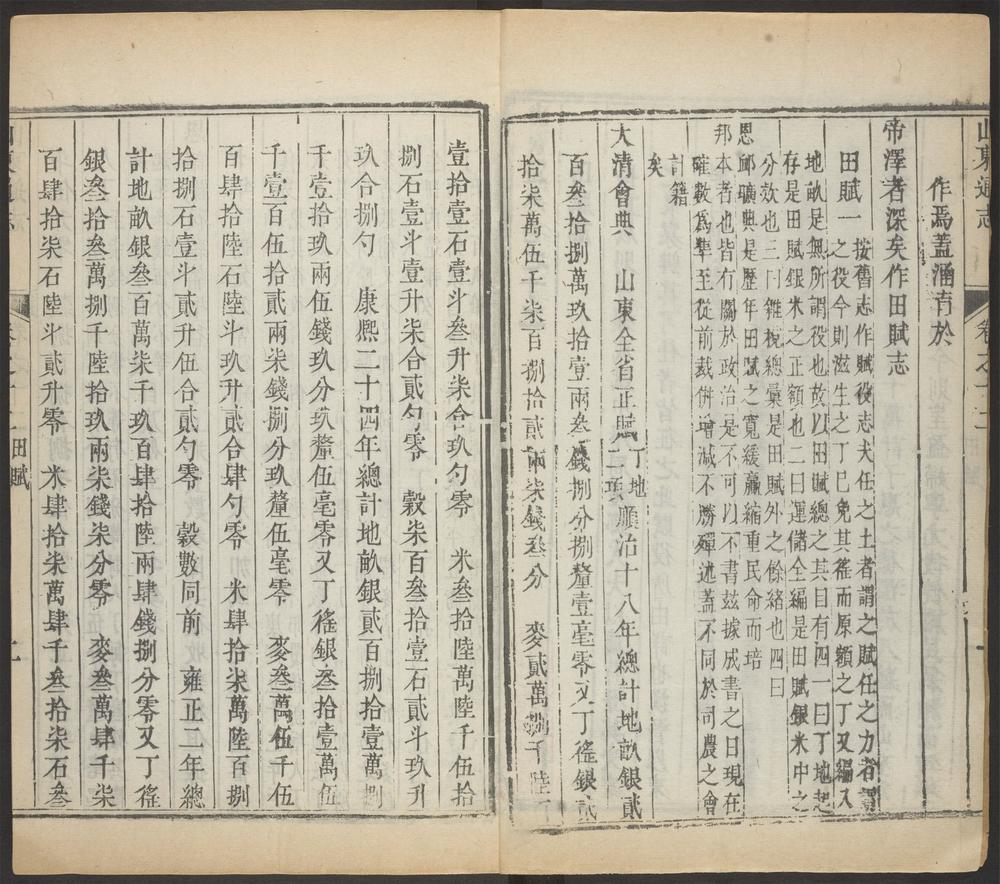 山東通志
卷之十二
作焉蓋涵育於
帝澤者深矣作田賦志
田賦一
按舊志作賦役志夫任之土者謂之賦任之力者謂
之役今則滋生之丁已免其徭而原額之丁又編入
地畝是無所謂役也故以田賦總之其目有四一曰丁地起
存是田賦銀米之正額也二曰運儲全編是田賦銀米中之
分欵也三曰雜稅總彙是田賦外之餘緒也四曰
恩邮曠典是歷年田賦之寬緩贏縮重民命而培
邦本者也皆有關於政治是不可以不書兹據成書之日現在
確數爲凖至從前裁併增減不勝殫述蓋不同於司農之會
計籍
矣
大清會典　山東全省正賦丁地二項順治十八年總計地畝銀貳
百叁拾捌萬玖拾壹兩叁錢捌分捌釐壹毫零又丁徭銀貳
拾柒萬伍千柒百捌拾貳兩柒錢叁分　麥貳萬捌千陸
壹拾壹石壹斗叁升柒合玖勺零　米叁拾陸萬陸千伍拾
捌石壹斗壹升柒合貳勺零　穀柒百叁拾壹石貳斗玖升
玖合捌勺　康熙二十四年總計地畝銀貳百捌拾壹萬捌
千壹拾玖兩伍錢玖分玖釐伍毫零又丁徭銀叁拾壹萬伍
千壹百伍拾貳兩柒錢捌分玖釐伍毫零　麥叁萬伍千伍
百肆拾陸石陸斗玖升貳合肆勺零　米肆拾柒萬陸百捌
拾捌石壹斗貳升伍合貳勺零　穀數同前　雍正二年總
計地畝銀叁百萬柒千玖百肆拾陸兩肆錢捌分零又丁徭
銀叁拾叁萬捌千陸拾玖兩柒錢柒分零　麥叁萬肆千柒
百肆拾柒石陸斗貳升零　米肆拾柒萬肆千叁拾柒石叁
田賦